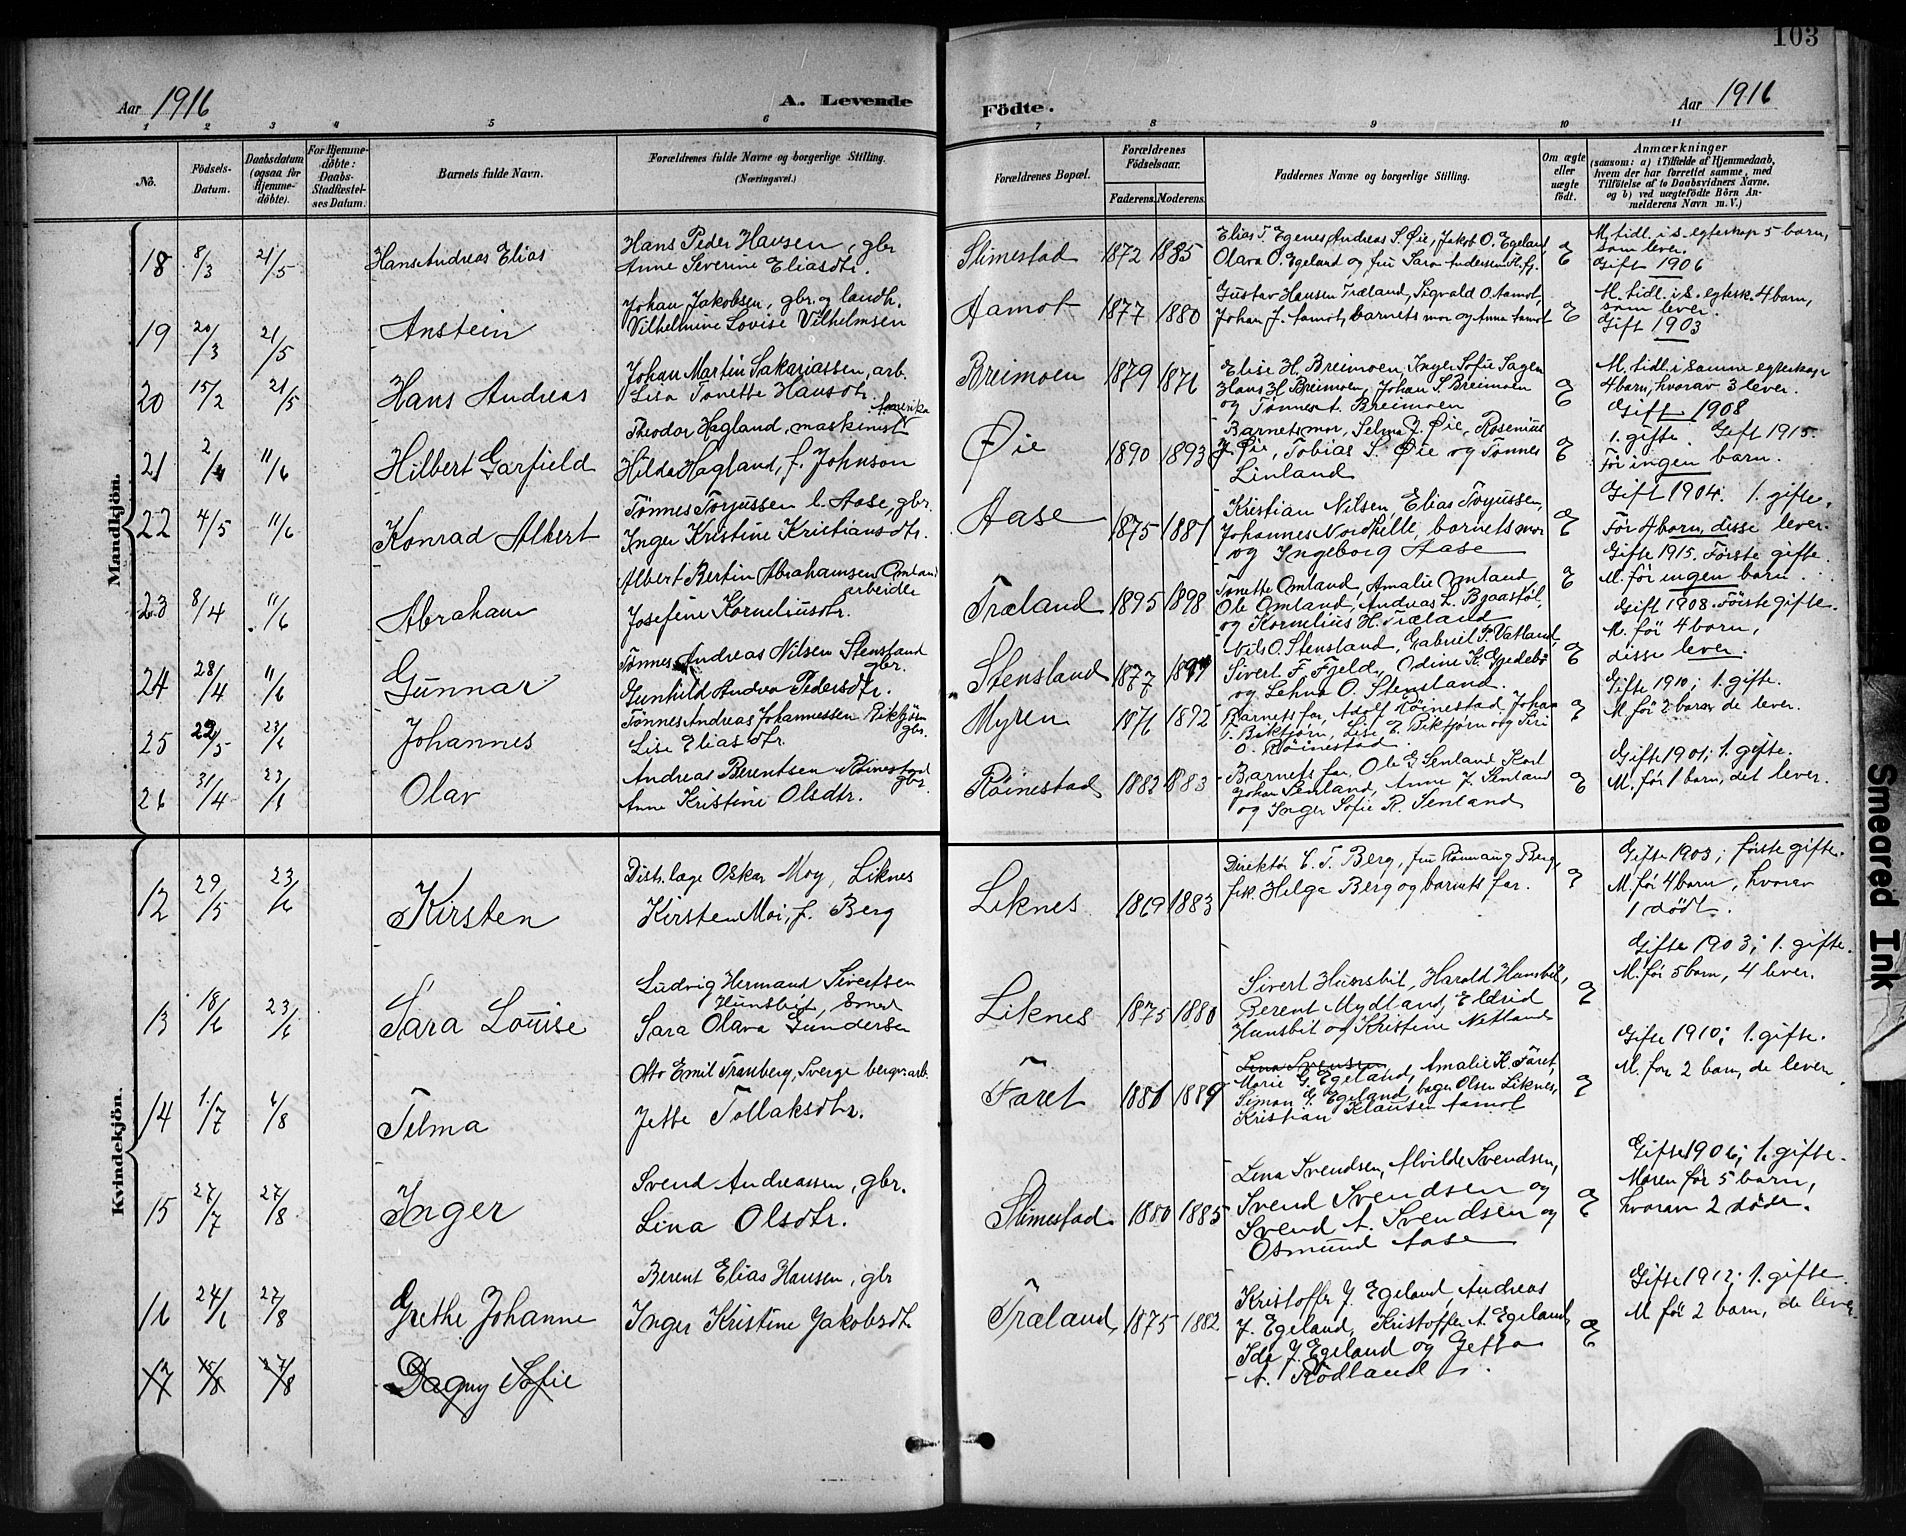 103
Aar 1916
A. Levende
Födte.
Aar 1916
1 2 3 4 5 6 7 8 9 10 11
No.
Födsels-Datum.
Daabsdatum (ogsaa for Hjemmedöbte).
For Hjemmedöbte: Daabs-Stadfæstelses Datum.
Barnets fulde Navn.
Forældrenes fulde Navne og borgerlige Stilling.
(Næringsvei.)
Forældrenes Bopæl.
Forældrenes Födselsaar.
Faderens. Moderens.
Faddernes Navne og borgerlige Stilling.
Om ægte eller uægte födt.
Anmærkninger
(saasom: a) i Tilfælde af Hjemmedaab, hvem der har forrettet samme, med Tilföielse af to Daabsvidners Navne, og b) ved uægtefödte Börn Anmelderens Navn m. V.)
Mandkjön.
18 8/3 21/5 Hans Andreas Elias
Hans Peder Hansen, gbr
Anne Severine Eliasdtr.
Slimestad 1872 1885
Elias T. Egenes, Andreas S. Øie, Jakob O. Egeland,
Olava O. Egeland og fru Sara Andersen
M. tidl. i s. egteskap 5 barn,
som lever.
Gift 1906
19 20/3 21/5 Anstein
Johan Jakobsen, gbr. og landh.
Vilhelmine Lovise Vilhelmsen
Aamot 1877 1880
Gustav Hansen Træland, Sigvald O. Aamot,
Johan J. Aamot, barnets mor og Anna Aamot
M. tidl. i s. egtesk. 4 barn,
som lever.
Gift 1903
20 15/2 21/5 Hans Andreas
Johan Martin Sakariassen, arb.
Lisa Tonette Hansdtr.
Breimoen 1879 1876
Elise H. Breimoen, Inger Sofie Sagen
Hans H Breimoen, Johan S. Breimoen
og Tønnes A. Breimoen
M. tidl. i samme egteskap
4 barn, hvorav 3 lever.
Gift 1908
21 2/4 11/6 Hilbert Garfield
Theodor Hagland, maskinist Amerika
Hilda Hagland, f. Johnson
Øie 1890 1893
Barnets mor, Selma J. Øie, Rosenius
J. Øie, Tobias S. Øie og Tønnes
Linland
1. gifte. Gift 1915.
Før ingen barn.
22 4/5 11/6 Konrad Albert
Tönnes Torjussen l. Aase, gbr.
Inger Kristine Kristiansdtr.
Aase 1875 1881
Kristian Nilsen, Elias Torjussen,
Johannes Nordhelle, barnets mor
og Ingeborg Aase
Gift 1904. 1. gifte.
Før 4 barn, disse lever.
23 8/4 11/6 Abraham
Albert Bertin Abrahamsen Omland
arbeider
Josefine Korneliusdtr.
Træland 1895 1898
Tonette Omland, Amalie Omland,
Ole Omland, Andreas L.
og Kornelius H. Træland
Gifte 1915. Første gifte.
M. før ingen barn.
24 28/4 11/6 Gunnar
Tönnes Andreas Nilsen Stensland
gbr.
Gunhild Andrea Pedersdtr.
Stensland 1877
Nils O. Stensland, Gabriel P. Vatland
Sivert F. Fjeld, Odine K. Egedebö
og Lehna O. Stensland.
Gift 1908. Förstegifte.
M. før 4 barn,
disse lever.
25 22/5 23/6 Johannes
Tönnes Andreas Johannessen Birkjörn
gbr.
Lise Eliasdtr.
Myren 1876 1892
Barnets far, Adolf Röinestad, Johan
og Siri
O. Röinestad.
Gifte 1910; 1. gifte.
M før 2 barn, de lever.
26 31/4 23/6 Olav
Andreas Berentsen Röinestad
gbr.
Anne Kristine Olsdtr.
Röinestad 1882 1883
Barnets far, Ole G Senland, Karl
Johan Senland, Anne J. Senland
og Inger Sofie R. Senland
Gifte 1901; 1. gifte.
M. før 1 barn, det lever.
Kvindekjön.
12 29/5 23/6 Kirsten
Distr. læge Oskar Moy, Liknes
Kirsten Moi, f. Berg
Liknes 1869 1883
Direktör C. T. Berg, fru Rönnaug Berg,
frk. Helga Berg og barnets far.
Gifte 1903; første gifte.
M. før 4 barn, hvorav
1 dödt.
13 18/6 23/6 Sara Louise
Ludvig Hermand Sivertsen
Hunsbet, smed
Sara Olava Gundersen
Liknes 1875 1880
Sivert Hunsbet, Harald Hunsbet,
Berent Mydland, Eldrid
Hunsbet og Kristine Netland
Gifte 1903; 1. gifte.
M. før 5 barn, 4 lever.
14 1/7 6/8 Telma
Otto Emil Tranberg, Sverge bergv. arb.
Jette Tollaksdtr.
Faret 1881 1889
Lina Svendsen, Amalie K. Faret,
Marie G. Egeland, bager Olsen Liknes,
Simon G. Egeland,
Kristian Klausen Aamot
Gifte 1910; 1. gifte.
M. før 2 barn, de lever.
15 27/7 27/8 Inger
Svend Andreassen, gbr.
Lina Olsdtr.
Slimestad. 1880 1885
Lina Svendsen, Alvilde Svendsen,
Svend Svendsen og
Svend A. Svendsen og
Osmund Aase
Gifte 1906; 1. gifte.
Moren før 5 barn,
hvorav 2 döde.
16 24/6 27/8 Grethe Johanne
Berent Elias Hansen, gbr
Inger Kristine Jakobsdt.
Træland, 1875 1882
Kristoffer J. Egeland, Andreas
J. Egeland, Kristoffer A Egeland,
Ida J. Egeland og Jetta
A. Rödland.
Gifte 1912; 1. gifte.
M før 2 barn, de lever
17 15/8 27/8 Dagny Sofie
Smeared Ink